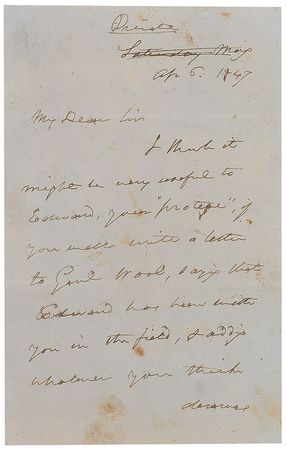 Private
Saturday Mg
Ap 6. 1847
My Dear Sir
I think it
might be very useful to
Edward, your "protege", if
you will write a letter
to Genl Wool, sayg that
Edward has been with
you in the field, & addg
whatever you think
deserves